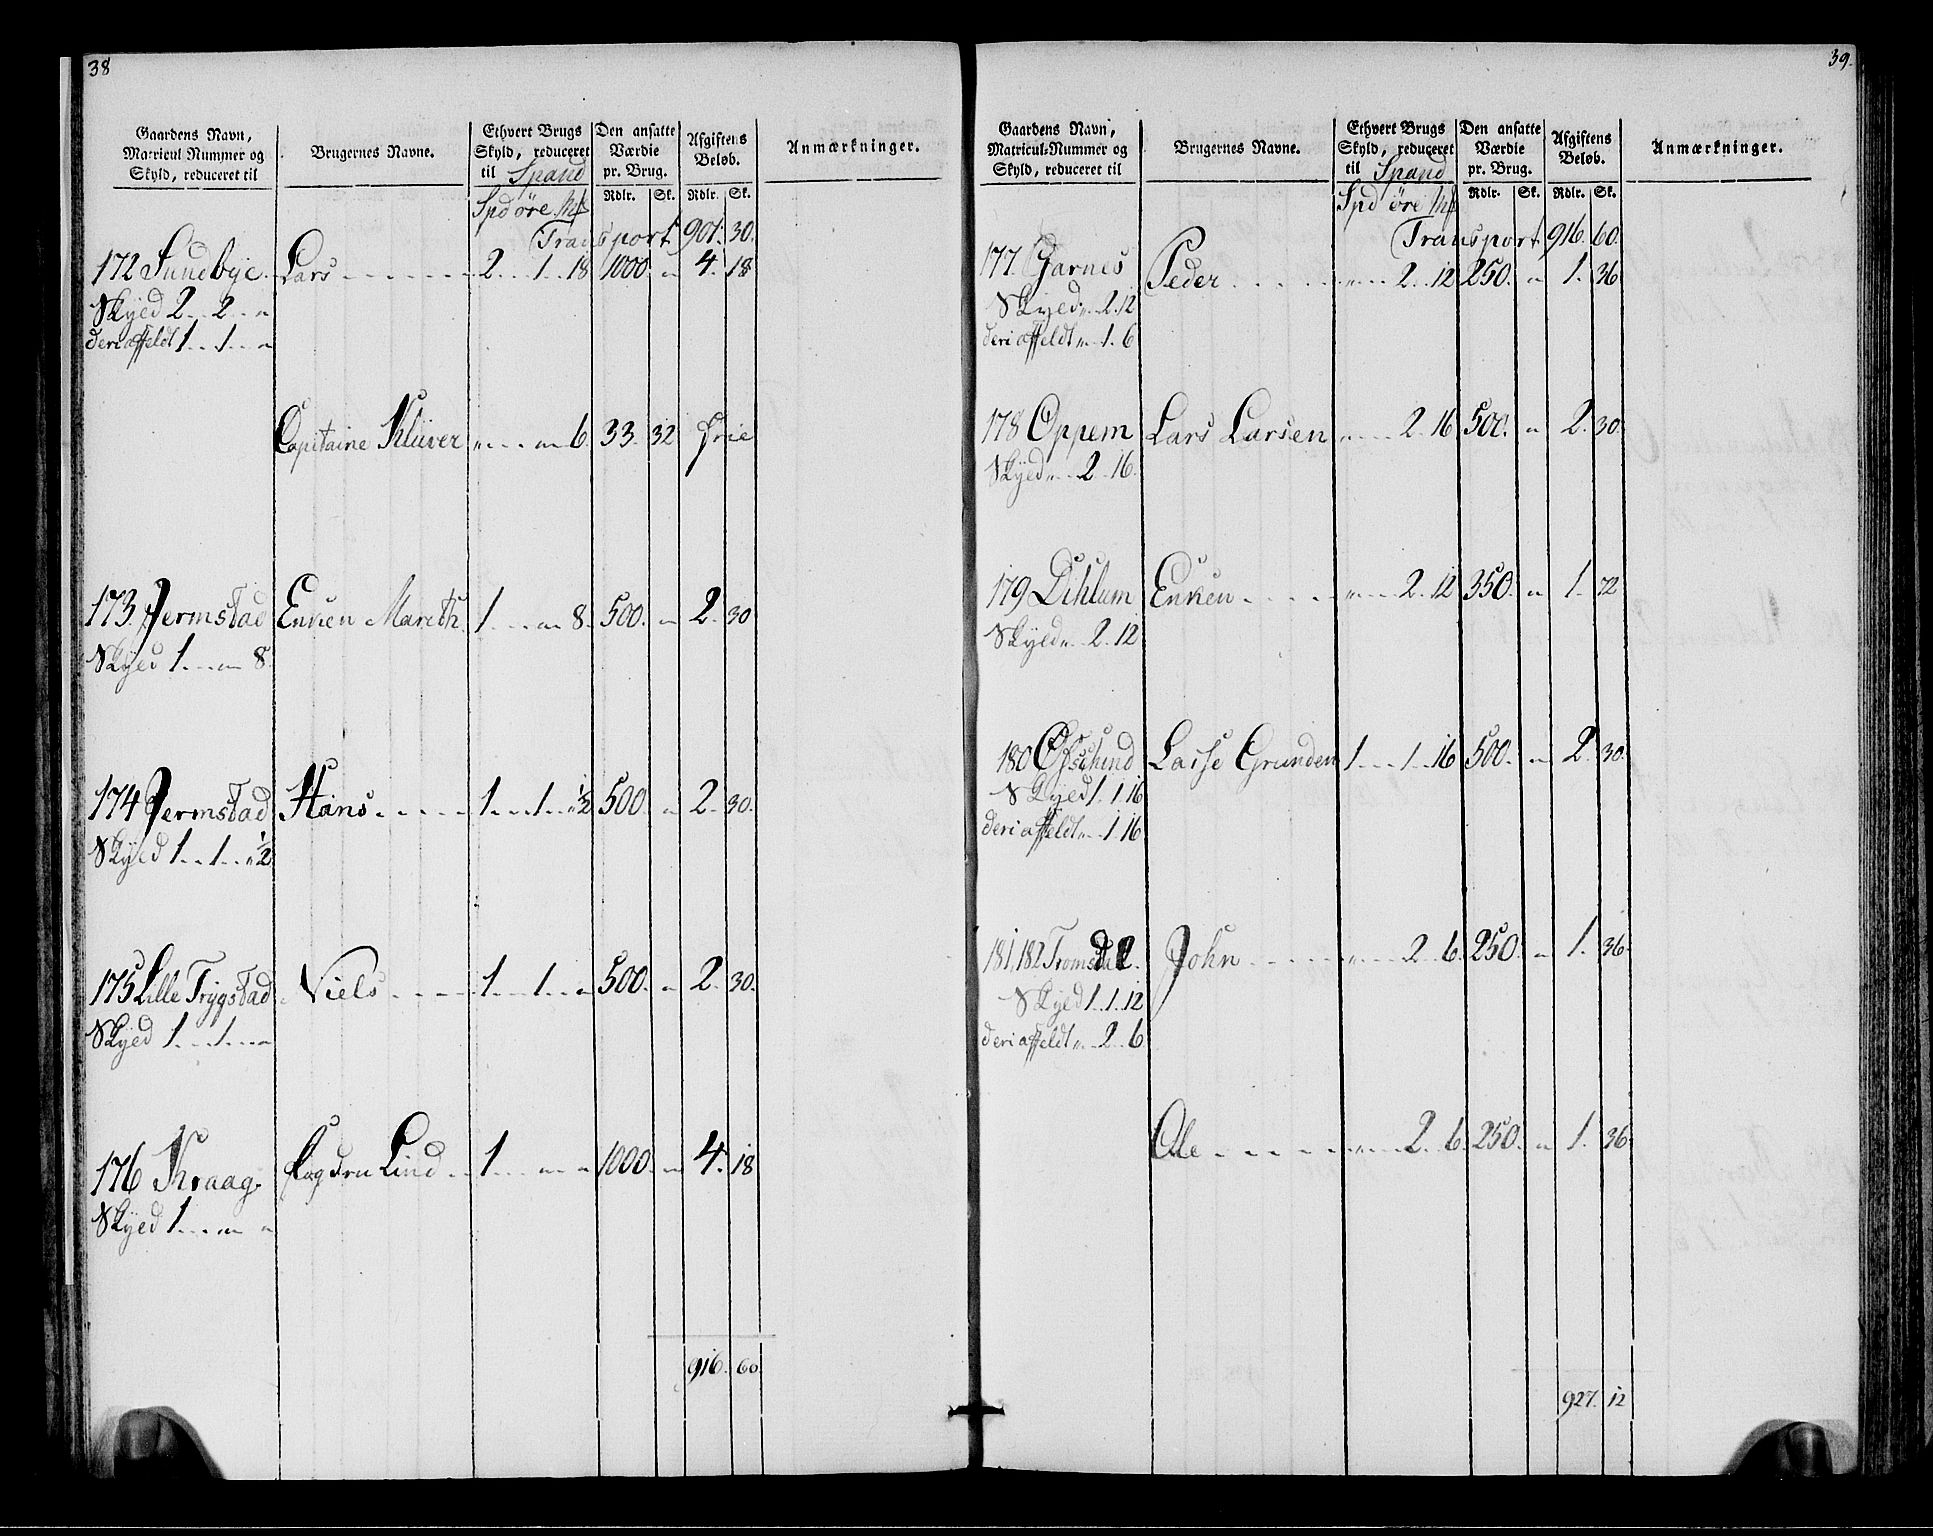 38
Gaardens Navn, Matricul-Nummer og Skyld, reduceret til
Brugernes Navne.
Ethvert Brugs Skyld, reduceret til Spand
Den ansatte Værdie pr. Brug.
Afgiftens Beløb.
Anmærkninger.
Spd øre Mk
Rdlr. Sk. Rdlr. Sk.
Transport 901. 30.
172 Sundbye Lars - - - - - - 2 . . 1 . . 18 1000. " 4. 18
Skyld 2 . . 2 . . "
deri affeldt 1 . . 1 . . "
Capitaine Klüver " . . . " 6 33. 32 frie
173 Jermstad Enken Mareth 1 . . . " 8. 500. " 2. 30
Skyld 1 . . . " 8.
174 Jermstad Hans . . . . . 1 . . 1 . . " ½ 500. " 2. 30.
Skyld 1 . . 1 . . " ½
175 Lille Trygstad Niels . . . . 1 . . 1 . . " 500. " 2. 30.
Skyld 1 . . 1 . . "
176 Kraag. Fogden Lind . . 1 . . . " " 1000. " 4. 18
Skyld 1 . . . " "
916. 60.
39.
Gaardens Navn, Matricul-Nummer og Skyld, reduceret til
Brugernes Navne.
Ethvert Brugs Skyld, reduceret til Spand
Den ansatte Værdie pr. Brug.
Afgiftens Beløb.
Anmærkninger.
Spd øre Mk
Rdlr. Sk. Rdlr. Sk.
Transport 916. 60.
177. Garnes Peder . . . . . " . . . 2 . . 12 250. " 1. 36
Skyld " . . 2. 12
deri affeldt " . . 1. 6
178 Oppem Lars Larsen " . . . 2. 16 500. " 2. 30.
Skyld " . . 2 . . 16.
179 Dihlum Enken . . . . . " . . . 2. 12 350. " 1. 72
Skyld " . . 2. 12
180 Lasse Grunden 1 . . . 1 . . 16 500. " 2. 30.
Skyld 1. 1. 16
deri affeldt " . . 1. 16
181, 182 Tromsdal. John . . . . . " . . . 2 . . 6. 250. " 1. 36.
Skyld 1 . . 1 . . 12
deri affeldt " . . 2 . . 6
Ole . . . . . " . . . 2 . . 6. 250. " 1. 36
927. 12